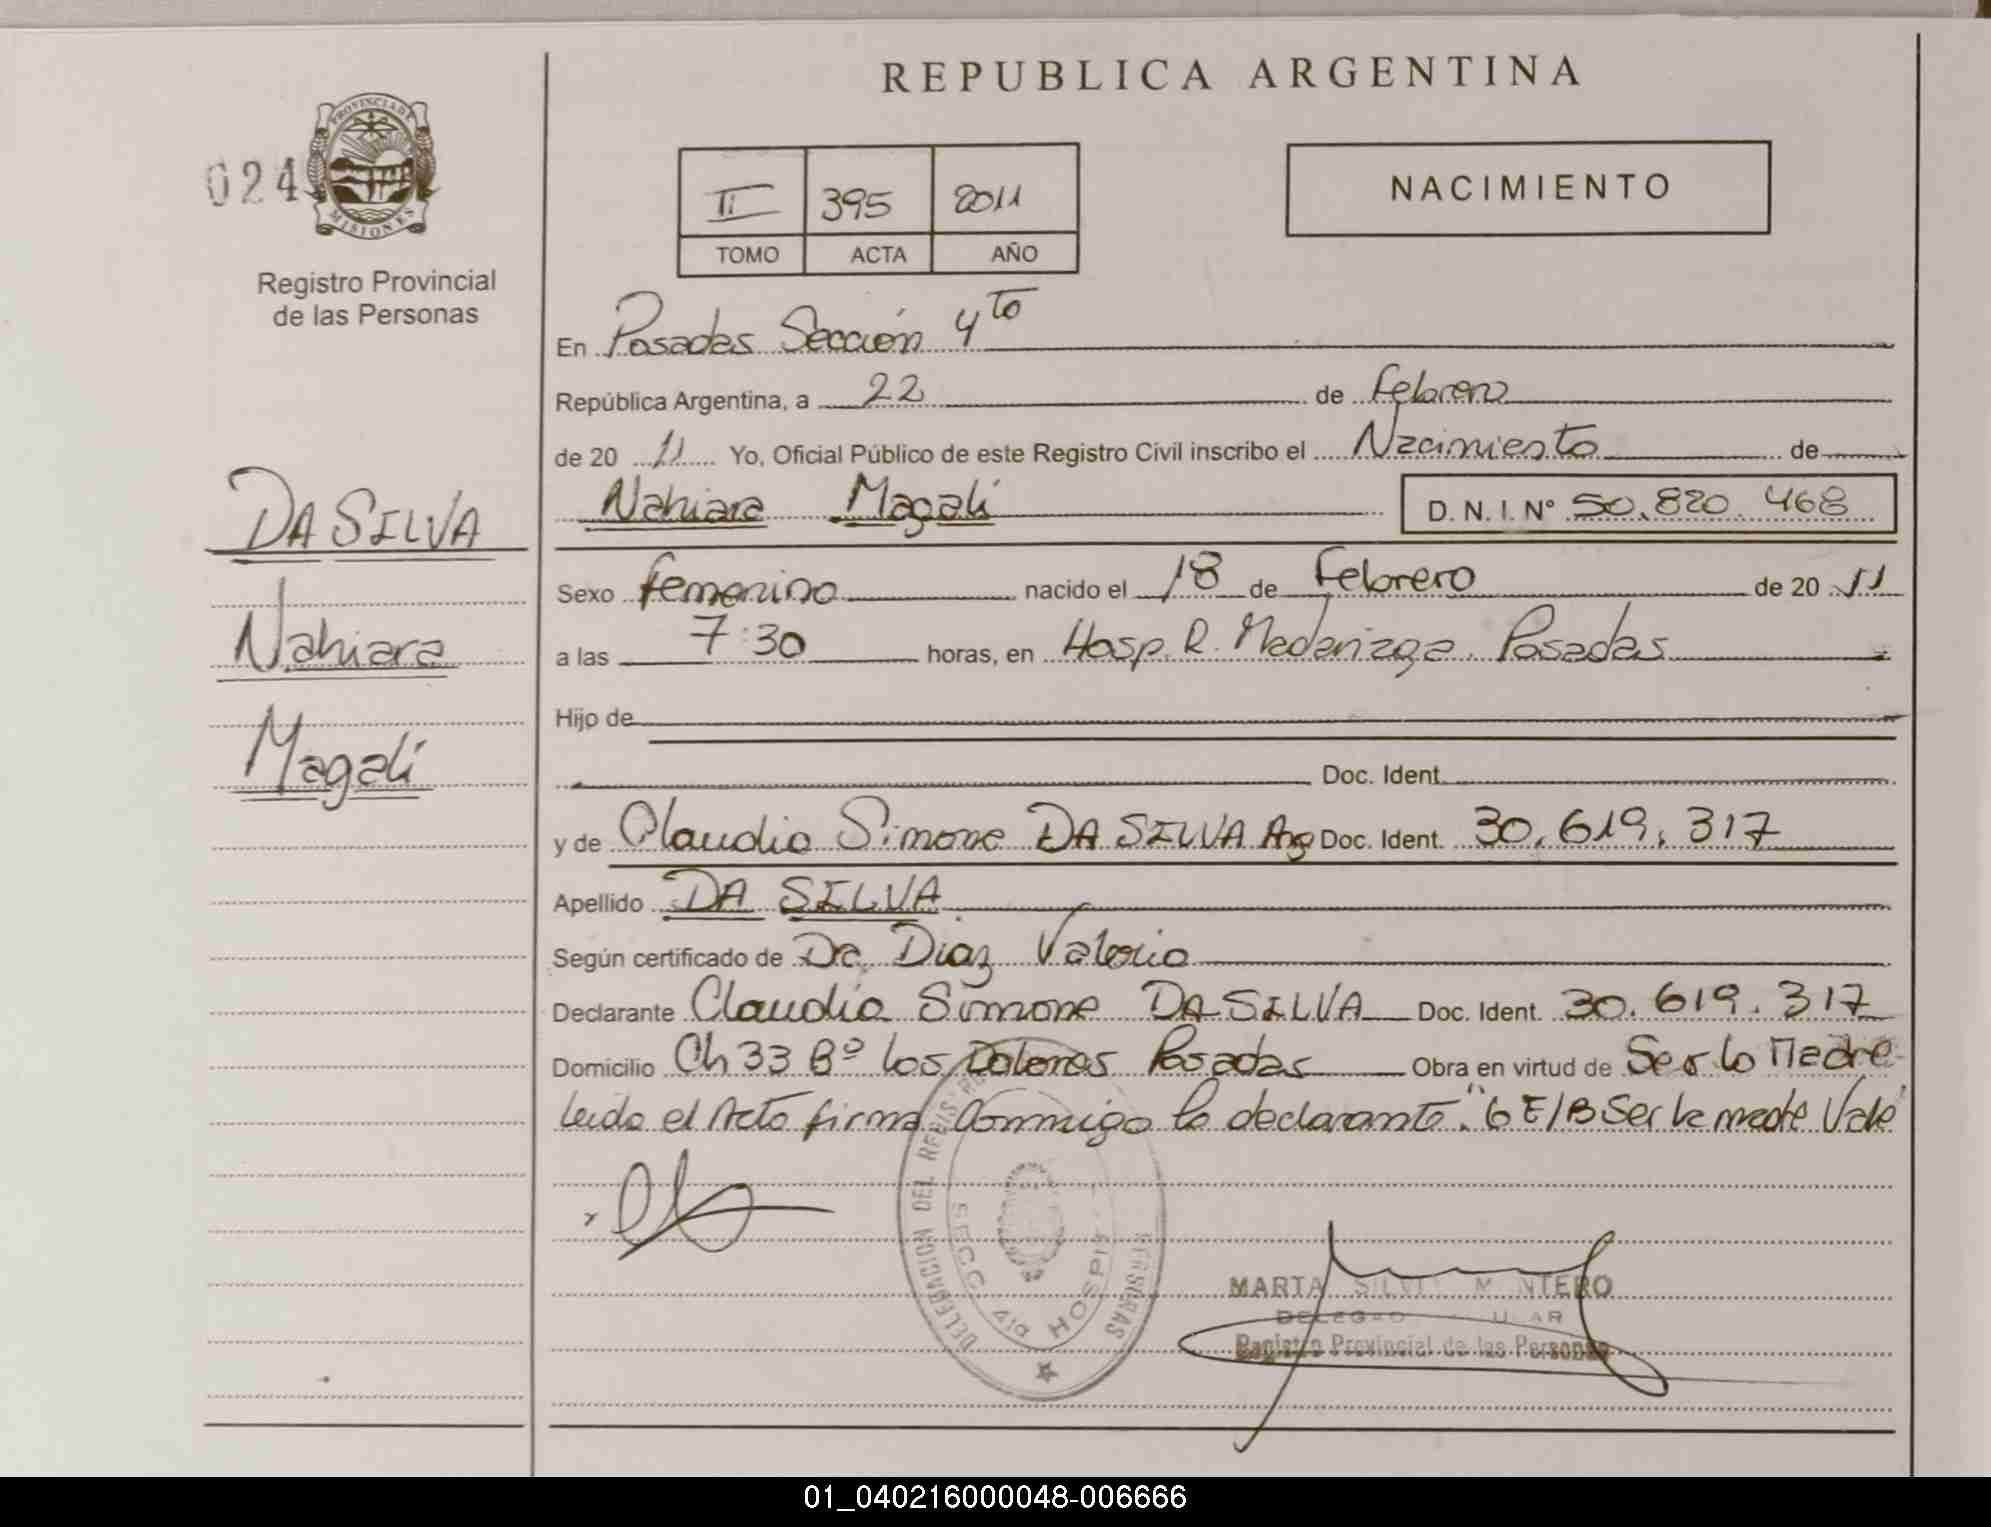 REPUBLICA ARGENTINA
PROVINCIA DE
MISIONES
024
Registro Provincial
de las Personas
II 395 2011
TOMO ACTA AÑO
NACIMIENTO
En Posadas Sección 4to
República Argentina, a 22 de Febrero
de 20 11 Yo, Oficial Público de este Registro Civil inscribo el Nacimiento de
Nahiara Magalí D. N. I. N° 50.820.468
DA SILVA
Nahiara
Magalí
Sexo femenino nacido el 18 de Febrero de 20 11
a las 7:30 horas, en Hosp. R. Madariaga. Posadas
Hijo de
Doc. Ident.
y de Claudia Simone DA SILVA Arg Doc. Ident. 30.619.317
Apellido DA SILVA
Según certificado de Dr. Diaz Valerio
Declarante Claudia Simone DA SILVA Doc. Ident. 30.619.317
Domicilio Ch 33 Bº los Dolores Posadas Obra en virtud de Ser la Madre
leída el Acta firma conmigo la declarante. "6 E/B Ser la madre Vale
DELEGACION DEL REGIS PERSONAS
SECC 4ta HOSPI
MARTA SILVI MONTERO
Registro Provincial de las Personas
01_040216000048-006666